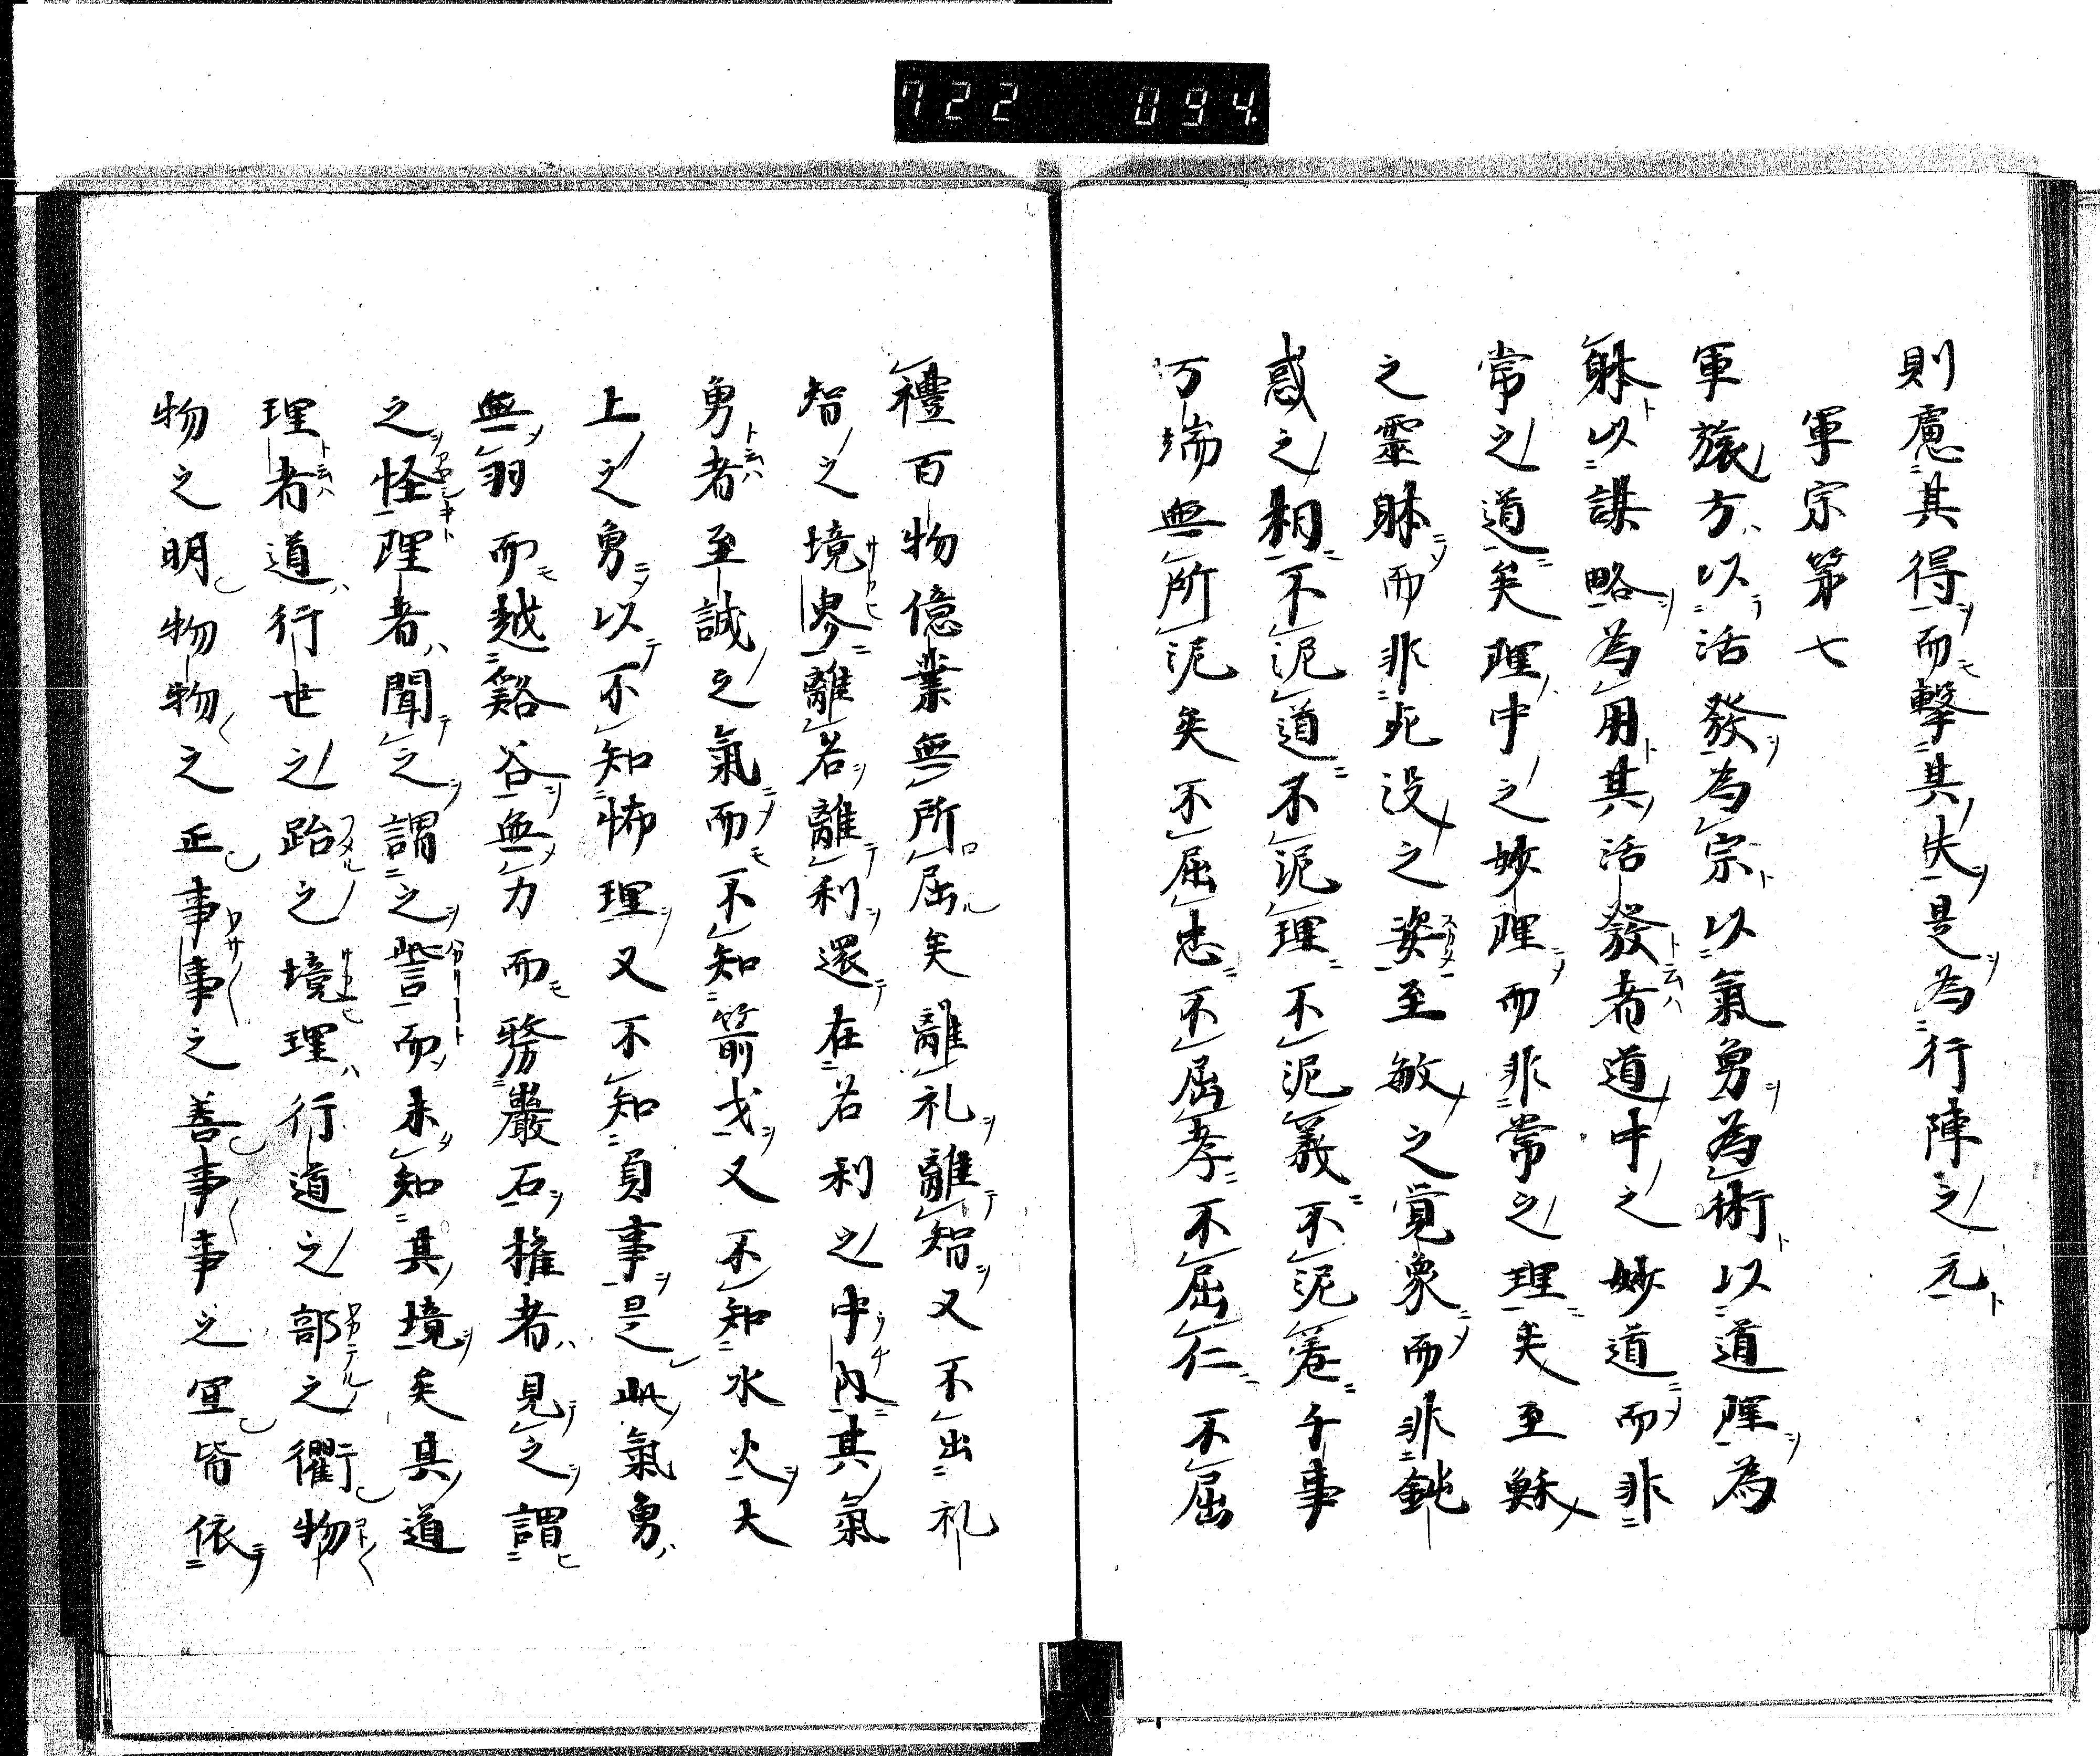 722 094.
則慮其得而撃其失是為行陣之元
軍宗第七
軍旅方以活發為宗以氣勇為術以道理為
躰以謀略為用其活發者道中之妙道而非
常之道矣理中之妙理而非常之理矣至穌
之靈躰而非死没之姿至敏之覚象而非鈍
惑之相不泥道不泥理不泥義不泥善千事
万端無所泥矣不屈忠不屈孝不屈仁不屈
禮百物億業無所屈矣離礼離智又不出礼
智之境界離若離利還在若利之中内其氣
勇者至誠之氣而不知箭戈又不知水火大
上之勇以不知怖理又不知負事是此氣勇
無羽而越谿谷無力而務巖石権者見之謂
之怪理者聞之謂之訾而未知其境矣其道
理者道行世之跆之境理行道之部之衢物
物之明物物之正事事之善事事之宜皆依